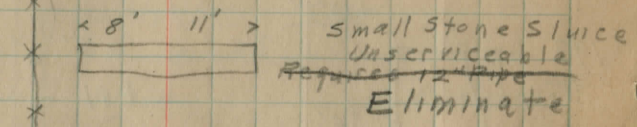 < 8' 11' >
Small Stone Sluice
Unserviceable
Requires 12" Pipe
Eliminate